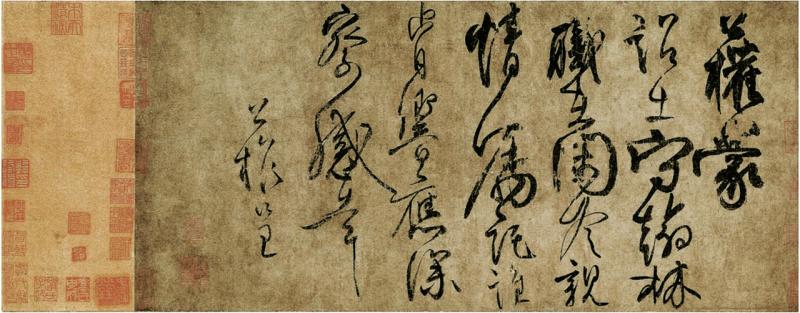 公權蒙
詔出守翰林
職在閑冷親
情囑託誰
肯響應深
察感幸
公權呈